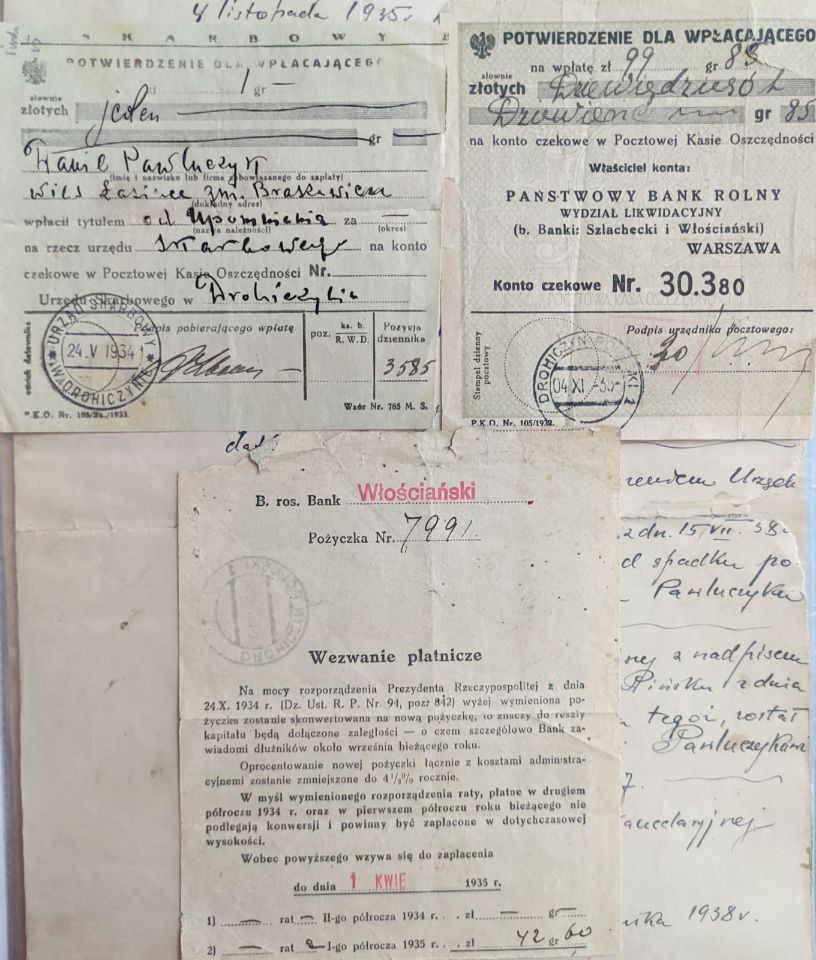 4 listopada 1935 r.
SKARBOWY
POTWIERDZENIE DLA WPŁACAJĄCEGO
zł 1 gr —
słownie
złotych jeden
gr —
(imię i nazwisko lub firma zobowiązanego do zapłaty)
wieś
(dokładny adres)
wpłacił tytułem od upomnienia za —
(nazwa należności) (okres)
na rzecz urzędu Skarbowego na konto
czekowe w Pocztowej Kasie Oszczędności Nr.
Urzędu Skarbowego w Drohiczynie
URZĄD SKARBOWY
24. V 1934
W DROHICZYNIE
Podpis pobierającego wpłatę
poz.
ks. b.
R. W. D.
Pozycja
dziennika
3585
odcisk datownika
P.K.O. Nr. 105/Sk./1933.
Wzór Nr. 785 M. S.
POTWIERDZENIE DLA WPŁACAJĄCEGO
na wpłatę zł 99 gr 85
słownie
złotych
gr 85
na konto czekowe w Pocztowej Kasie Oszczędności
Właściciel konta:
PAŃSTWOWY BANK ROLNY
WYDZIAŁ LIKWIDACYJNY
(b. Banki: Szlachecki i Włościański)
WARSZAWA
Konto czekowe Nr. 30.380
Podpis urzędnika pocztowego:
Stempel dzienny
pocztowy
DROHICZYN
04 XI -35
P.K.O. Nr. 105/1932.
B. ros. Bank Włościański
Pożyczka Nr. 7991.
DROHICZYN
Wezwanie płatnicze
Na mocy rozporządzenia Prezydenta Rzeczypospolitej z dnia
24.X. 1934 r. (Dz. Ust. R. P. Nr. 94, poz. 842) wyżej wymieniona po-
życzka zostanie skonwertowana na nową pożyczkę, to znaczy do reszty
kapitału będą dołączone zaległości — o czem szczegółowo Bank za-
wiadomi dłużników około września bieżącego roku.
Oprocentowanie nowej pożyczki łącznie z kosztami administra-
cyjnemi zostanie zmniejszone do 4½% rocznie.
W myśl wymienionego rozporządzenia raty, płatne w drugiem
półroczu 1934 r. oraz w pierwszem półroczu roku bieżącego nie
podlegają konwersji i powinny być zapłacone w dotychczasowej
wysokości.
Wobec powyższego wzywa się do zapłacenia
do dnia 1 KWIE 1935 r.
1) — rat — II-go półrocza 1934 r. . zł — gr —
2) — rat I-go półrocza 1935 r. . zł 42 gr 60
z dn. 15.VII. 38
spadku po
Pawluczyku
z nadpisem
Pińsku z dnia
tegoż, został
kancelaryjnej
1938 r.